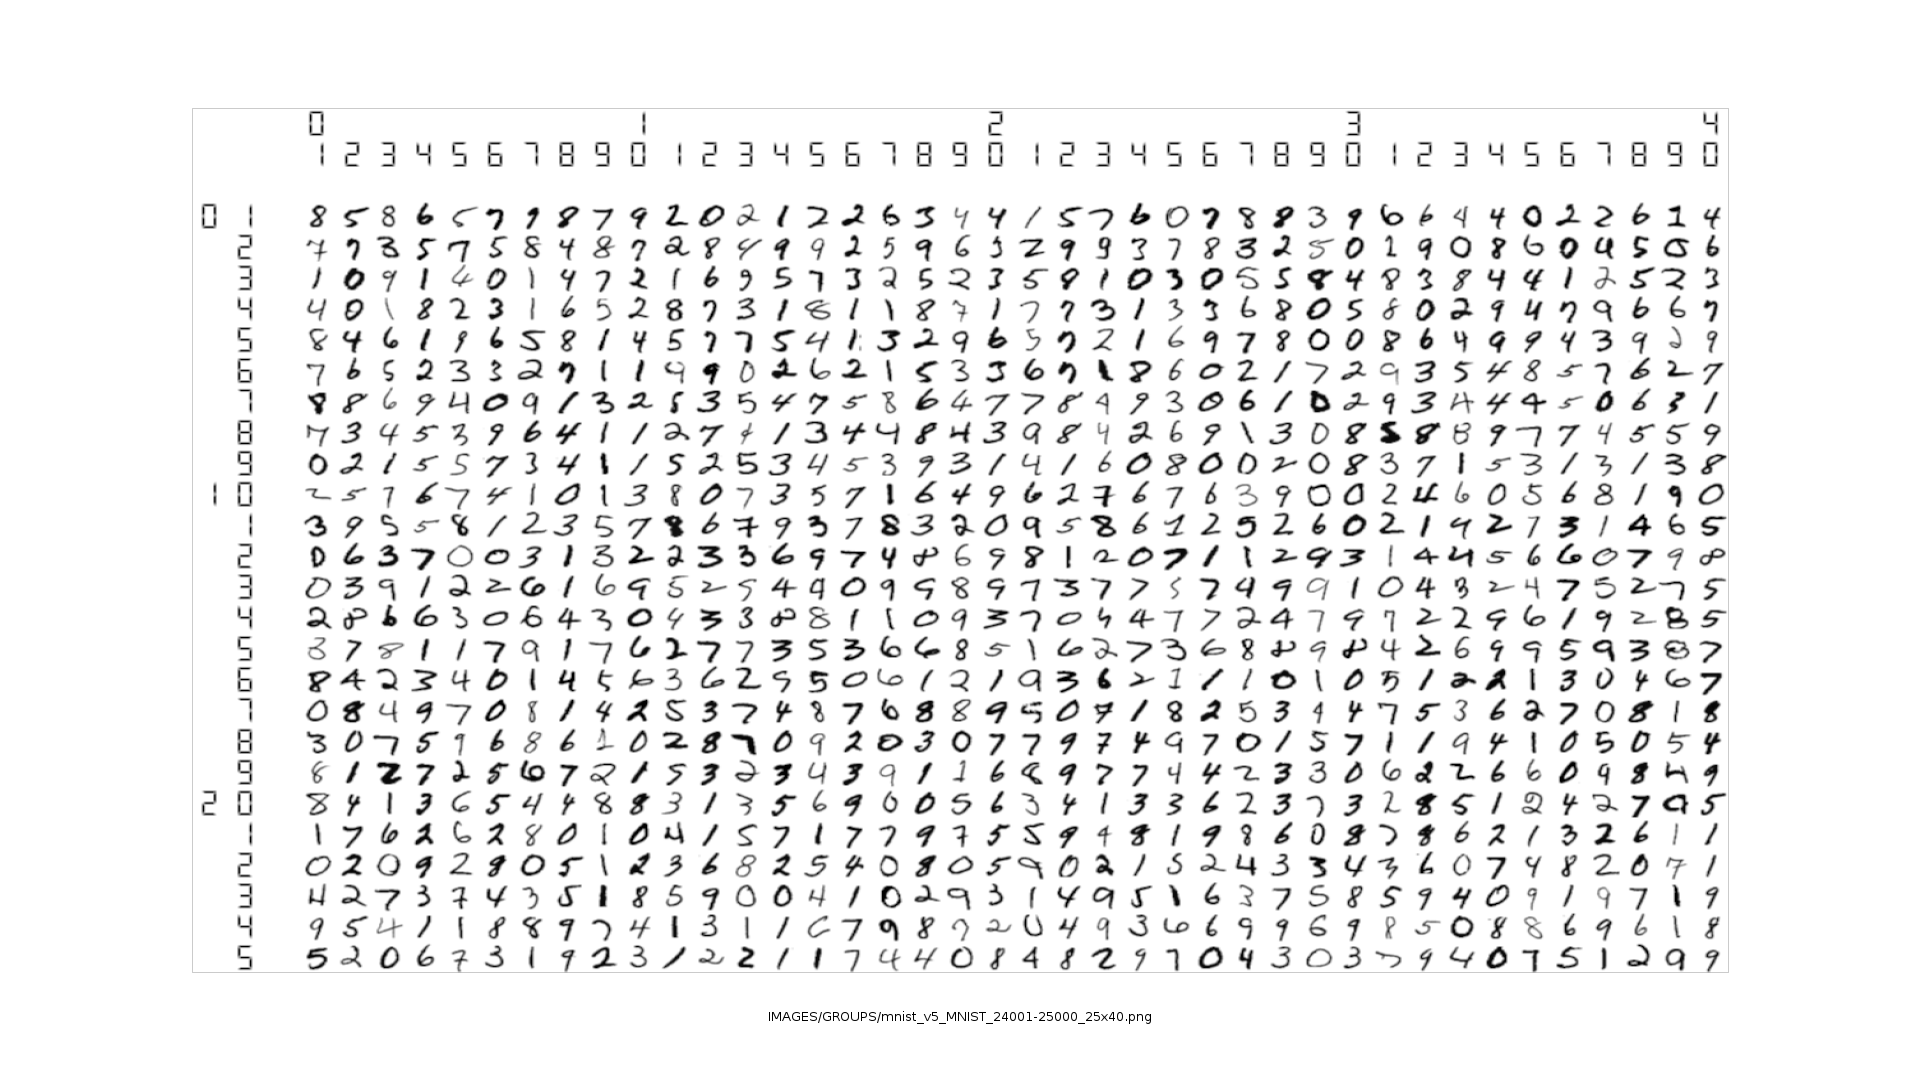 0 1 2 3 4
1 2 3 4 5 6 7 8 9 0 1 2 3 4 5 6 7 8 9 0 1 2 3 4 5 6 7 8 9 0 1 2 3 4 5 6 7 8 9 0
0 1 8 5 8 6 5 7 9 8 7 9 2 0 2 1 2 2 6 3 4 4 1 5 7 6 0 7 8 8 3 9 6 6 4 4 0 2 2 6 1 4
2 7 7 3 5 7 5 8 4 8 7 2 8 4 9 9 2 5 9 6 3 2 9 9 3 7 8 3 2 5 0 1 9 0 8 6 0 4 5 0 6
3 1 0 9 1 4 0 1 4 7 2 1 6 9 5 7 3 2 5 2 3 5 8 1 0 3 0 5 5 8 4 8 3 8 4 4 1 2 5 2 3
4 4 0 1 8 2 3 1 6 5 2 8 7 3 1 8 1 1 8 7 1 7 7 3 1 3 3 6 8 0 5 8 0 2 9 4 7 9 6 6 7
5 8 4 6 1 9 6 5 8 1 4 5 7 7 5 4 1 3 2 9 6 5 7 2 1 6 9 7 8 0 0 8 6 4 9 9 4 3 9 2 9
6 7 6 5 2 3 3 2 7 1 1 9 9 0 2 6 2 1 5 3 3 6 7 1 8 6 0 2 1 7 2 9 3 5 4 8 5 7 6 2 7
7 8 8 6 9 4 0 9 1 3 2 5 3 5 4 7 5 8 6 4 7 7 8 9 9 3 0 6 1 0 2 9 3 4 4 4 5 0 6 3 1
8 7 3 4 5 3 9 6 4 1 1 2 7 4 1 3 4 4 8 4 3 9 8 4 2 6 9 1 3 0 8 5 8 8 9 7 7 4 5 5 9
9 0 2 1 5 5 7 3 4 1 1 5 2 5 3 4 5 3 9 3 1 4 1 6 0 8 0 0 2 0 8 3 7 1 5 3 1 3 1 3 8
1 0 2 5 7 6 7 4 1 0 1 3 8 0 7 3 5 7 1 6 4 9 6 2 7 6 7 6 3 9 0 0 2 4 6 0 5 6 8 1 9 0
1 3 9 5 5 8 1 2 3 5 7 8 6 7 9 3 7 8 3 2 0 9 5 8 6 1 2 5 2 6 0 2 1 4 2 7 3 1 4 6 5
2 0 6 3 7 0 0 3 1 3 2 2 3 3 6 9 7 4 8 6 9 8 1 2 0 7 1 1 2 9 3 1 4 4 5 6 6 0 7 9 8
3 0 3 9 1 2 2 6 1 6 9 5 2 5 4 9 0 9 9 8 9 7 3 7 7 5 7 4 9 9 1 0 4 3 2 4 7 5 2 7 5
4 2 8 6 6 3 0 6 4 3 0 4 3 3 8 8 1 1 0 9 3 7 0 4 4 7 7 2 4 7 9 7 2 2 9 6 1 9 2 8 5
5 3 7 8 1 1 7 9 1 7 6 2 7 7 3 5 3 6 6 8 5 1 6 2 7 3 6 8 8 9 8 4 2 6 9 9 5 9 3 8 7
6 8 4 2 3 4 0 1 4 5 6 3 6 2 9 5 0 6 1 2 1 9 3 6 2 1 1 1 0 1 0 5 1 2 2 1 3 0 4 6 7
7 0 8 4 9 7 0 8 1 4 2 5 3 7 4 8 7 6 8 8 9 5 0 7 1 8 2 5 3 4 4 7 5 3 6 2 7 0 8 1 8
8 3 0 7 5 9 6 8 6 1 0 2 8 7 0 9 2 0 3 0 7 7 9 7 4 9 7 0 1 5 7 1 1 9 4 1 0 5 0 5 4
9 8 1 2 7 2 5 6 7 2 1 5 3 2 3 4 3 9 1 1 6 8 9 7 7 4 4 2 3 3 0 6 2 2 6 6 0 9 8 4 9
2 0 8 4 1 3 6 5 4 4 8 8 3 1 3 5 6 9 0 0 5 6 3 4 1 3 3 6 2 3 7 3 2 8 5 1 2 4 2 7 9 5
1 1 7 6 2 6 2 8 0 1 0 4 1 5 7 1 7 7 9 7 5 5 9 4 8 1 9 8 6 0 8 7 8 6 2 1 3 2 6 1 1
2 0 2 0 9 2 8 0 5 1 2 3 6 8 2 5 4 0 8 0 5 9 0 2 1 5 2 4 3 3 4 3 6 0 7 4 8 2 0 7 1
3 4 2 7 3 7 4 3 5 1 8 5 9 0 0 4 1 0 2 9 3 1 4 9 5 1 6 3 7 5 8 5 9 4 0 9 1 9 7 1 9
4 9 5 4 1 1 8 8 9 7 4 1 3 1 1 6 7 9 8 7 2 0 4 9 3 6 6 9 9 6 9 8 5 0 8 8 6 9 6 1 8
5 5 2 0 6 7 3 1 9 2 3 1 2 2 1 1 7 4 4 0 8 4 8 2 9 7 0 4 3 0 3 7 9 4 0 7 5 1 2 9 9
IMAGES/GROUPS/mnist_v5_MNIST_24001-25000_25x40.png